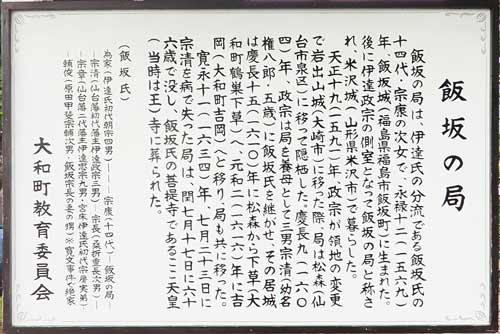 飯坂の局
飯坂の局は、伊達氏の分流である飯坂氏の
十四代、宗康の次女で、永禄十二(一五六九)
年、飯坂城(福島県福島市飯坂町)に生まれた。
後に伊達政宗の側室となって飯坂の局と称さ
れ、米沢城(山形県米沢市)で暮らした。
天正十九(一五九一)年、政宗が領地の変更
で岩出山城(大崎市)に移った際、局は松森(仙
台市泉区)に移って隠栖した。慶長九(一六〇
四)年、政宗は局を養母として三男宗清(幼名
権八郎・五歳)に飯坂氏を継がせ、その居城
は慶長十五(一六一〇)年に松森から下草(大
和町鶴巣下草)へ、元和二(一六一六)年に吉
岡(大和町吉岡)へと移り、局も共に移った。
寛永十一(一六三四)年、七月二十三日に
宗清を病で失った局は、閏七月十七日に六十
六歳で没し、飯坂氏の菩提寺であるここ天皇
(当時は王)寺に葬られた。
(飯坂氏)
為家(伊達氏初代朝宗四男)―……―宗康(十四代)―飯坂の局―
―宗清(仙台藩初代藩主伊達政宗三男)―宗長(桑折重長次男)―
―宗章(仙台藩二代藩主伊達忠宗九男・宮床伊達氏初代宗房実弟)―
―輔俊(原田甲斐宗輔次男、飯坂宗長の妻の甥)※寛文事件で絶家
大和町教育委員会